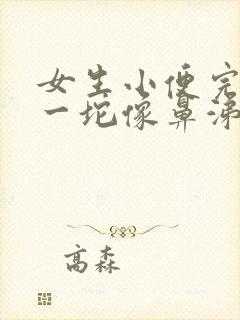 女生小便完
一坨像鼻涕
高森